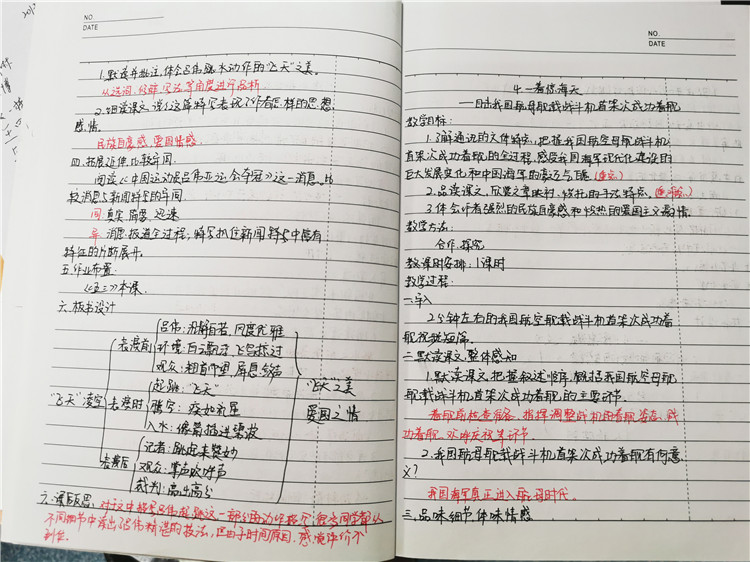 NO.
DATE
1.默读并批注,体会吕伟跳水动作的"飞天"之美。
从选词、修辞、写法等角度进行品析
2.细读课文,说说这篇特写表现了作者怎样的思想
感情。
民族自豪感、爱国情感
四.拓展延伸,比较异同
阅读《中国运动员吕伟亚运会夺冠》这一消息,比
较消息与新闻特写的异同
同:真实、简、迅速
异:消息报道全过程;特写抓住新闻事实中富有
特征的片断展开。
五.作业布置
《五三》本课
六.板书设计
"飞天"凌空
表演前
吕伟:沉静自若、风度优雅
环境:白云飘浮、飞鸟掠过
观众:翘首仰望、屏息敛声
表演时
起跳:"飞天"
腾空:疾如流星
入水:像箭插进碧波
表演后
记者:跳起来赞妙
观众:掌声欢呼声
裁判:亮出高分
"飞天"之美
爱国之情
六.课后反思:
NO.
DATE
4.一着惊海天
——目击我国航母舰载战斗机首架次成功着舰
教学目标:
1.了解通讯的文体特点,把握我国航空母舰舰载战斗机
首架次成功着舰的全过程,感受我国海军现代化建设的
巨大发展变化和中国海军的豪迈与自豪(重点)
2.品读课文,欣赏文章映衬、烘托的手法特点。
3.体会作者强烈的民族自豪感和炽热的爱国主义豪情
教学方法:
合作、探究
教课时安排:1课时
教学过程:
一.导入
2分钟左右的我国航空舰载战斗机首架次成功着
舰视频短片。
二.默读课文,整体感知
1.默读课文,把握叙述顺序,概括我国航空母舰
舰载战斗机首架次成功着舰的主要环节。
着舰前检查准备、指挥调整战机到着舰姿态、成
功着舰、欢呼庆祝等环节.
2.我国航母舰载战斗机首架次成功着舰有何意
义?
我国海军真正进入航母时代。
三.品味细节,体味情感